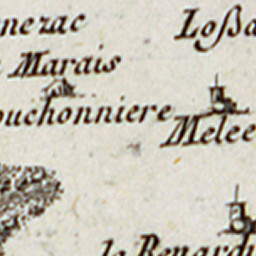 nezac
Loßa
Marais
ouchonniere
Melee
la Renardi